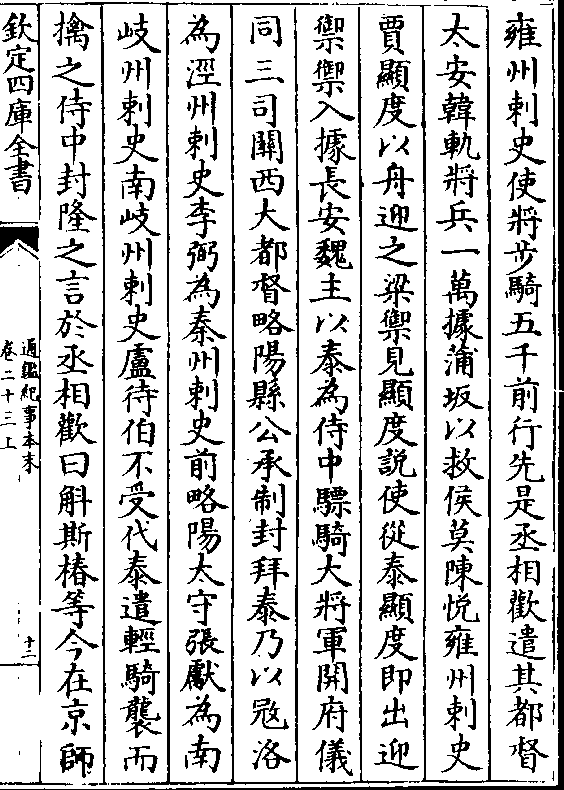 雍州刺史使將步騎五千前行先是丞相歡遣其都督
太安韓軌將兵一萬據蒲坂以救侯莫陳悅雍州刺史
賈顯度以舟迎之梁禦見顯度說使從泰顯度即出迎
禦禦入據長安魏主以泰為侍中驃騎大將軍開府儀
同三司關西大都督略陽縣公承制封拜泰乃以寇洛
為涇州刺史李弼為秦州刺史前略陽太守張獻為南
岐州刺史南岐州刺史盧待伯不受代泰遣輕騎襲而
擒之侍中封隆之言於丞相歡曰斛斯椿等今在京師
欽定四庫全書
通鑑紀事本末
卷二十三上
十二